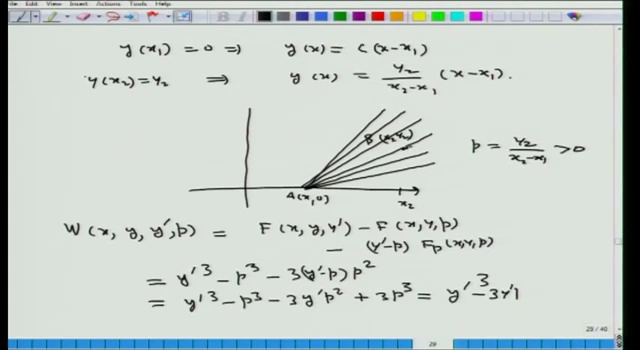 File Edit View Insert Actions Tools Help
y(x₁) = 0 ⇒ y(x) = C(x-x₁)
y(x₂) = y₂ ⇒ y(x) = y₂/(x₂-x₁) (x-x₁).
B(x₂,y₂)
p = y₂/(x₂-x₁) > 0
A(x₁,0)
x₂
W(x, y, y', p) = F(x, y, y') - F(x, y, p)
- (y'-p) Fp(x,y,p)
= y'³ - p³ - 3(y'-p)p²
= y'³ - p³ - 3y'p² + 3p³ = y'³ - 3y'
29 / 40
29